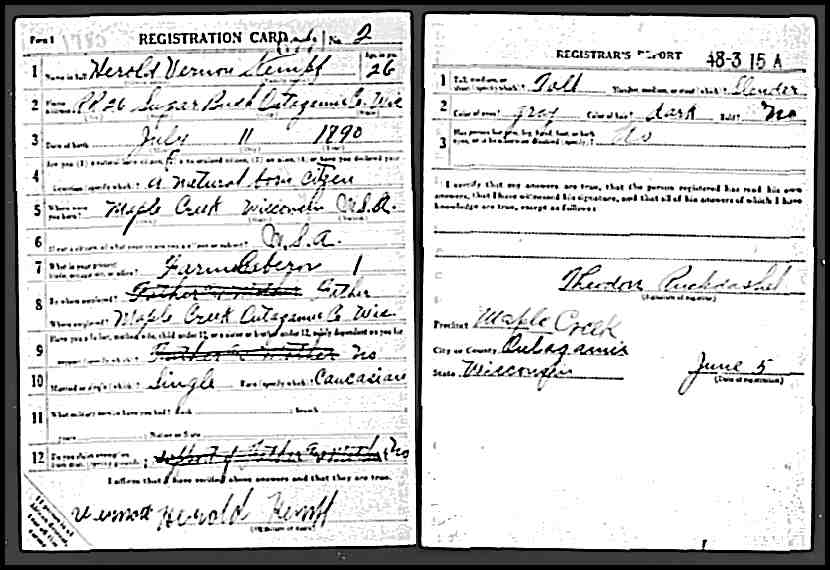 Form 1
REGISTRATION CARD No. 2
1 Name in full Herold Vernon Kempf Age, in yrs. 26
2 Home address RR 26 Sugar Bush Outagamie Co. Wis
3 Date of birth July 11 1890
4 Are you (1) a natural-born citizen, (2) a naturalized citizen, (3) an alien, (4) or have you declared your
intention (specify which)? a natural born citizen
5 Where were you born? Maple Creek Wisconsin U.S.A.
6 If not a citizen, of what country are you a citizen or subject? U.S.A.
7 What is your present trade, occupation, or office? Farm Laberor 1
8 By whom employed? Father
Where employed? Maple Creek Outagamie Co Wis
9 Have you a father, mother, wife, child under 12, or a sister or brother under 12, solely dependent on you for
support (specify which)? Father or Mother No
10 Married or single (which)? Single Race (specify which)? Caucasian
11 What military service have you had? Rank branch
years Nation or State
12 Do you claim exemption from draft (specify grounds)? support of Father or Mother No
I affirm that I have verified above answers and that they are true.
Herold Kempf
REGISTRAR'S REPORT 48-3 15 A
1 Tall, medium, or short (specify which)? Tall Slender, medium, or stout (which)? Slender
2 Color of eyes? gray Color of hair? dark Bald? No
3 Has person lost arm, leg, hand, foot, or both eyes, or is he otherwise disabled (specify)? No
I certify that my answers are true, that the person registered has read his own
answers, that I have witnessed his signature, and that all of his answers of which I have
knowledge are true, except as follows:
Theodor Ruckdashel
(Signature of registrar)
Precinct Maple Creek
City or County Outagamie
State Wisconsin June 5
(Date of registration)